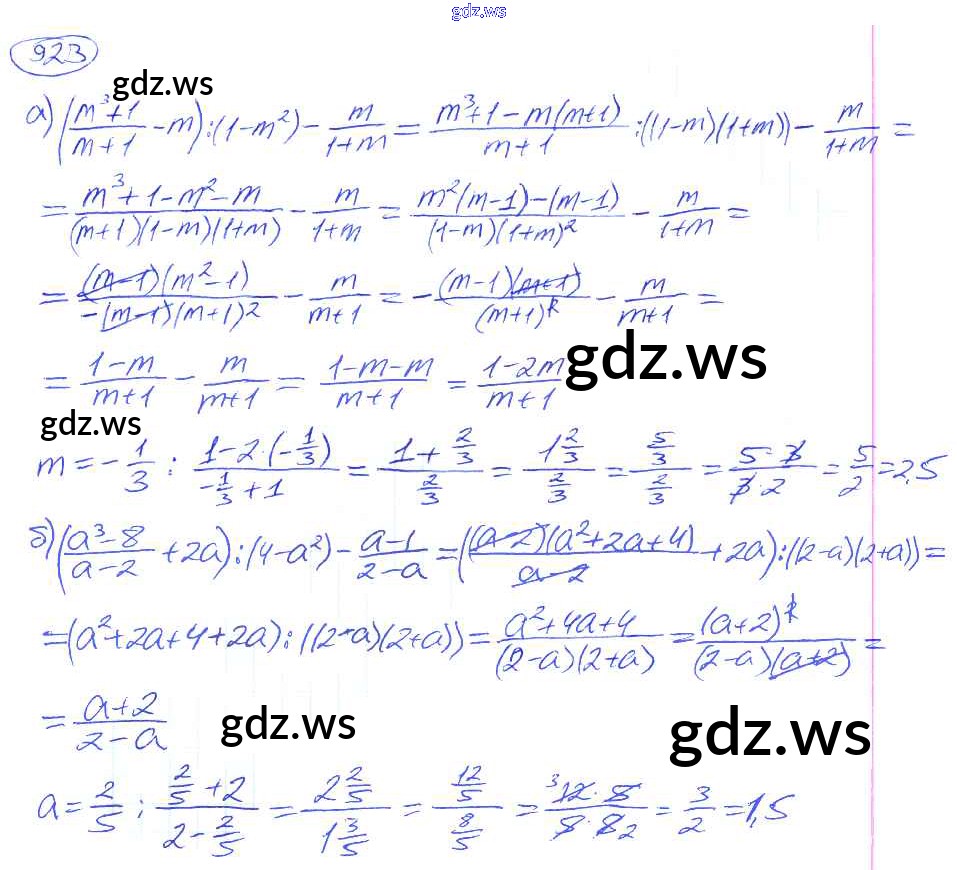 gdz.ws
923
gdz.ws
а) ((m³+1)/(m+1) - m):(1-m²) - m/(1+m) = (m³+1-m(m+1))/(m+1) :((1-m)(1+m)) - m/(1+m) =
= (m³+1-m²-m)/((m+1)(1-m)(1+m)) - m/(1+m) = (m²(m-1)-(m-1))/((1-m)(1+m)²) - m/(1+m) =
= ((m-1)(m²-1))/(-(m-1)(m+1)²) - m/(m+1) = -((m-1)(m+1))/(m+1)² - m/(m+1) =
gdz.ws
= (1-m)/(m+1) - m/(m+1) = (1-m-m)/(m+1) = (1-2m)/(m+1)
gdz.ws
m = -1/3 ; (1-2·(-1/3))/(-1/3+1) = (1+2/3)/(2/3) = (1 2/3)/(2/3) = (5/3)/(2/3) = (5·3)/(3·2) = 5/2 = 2,5
б) ((a³-8)/(a-2) + 2a):(4-a²) - (a-1)/(2-a) = (((a-2)(a²+2a+4))/(a-2) + 2a):((2-a)(2+a)) =
= (a²+2a+4+2a):((2-a)(2+a)) = (a²+4a+4)/((2-a)(2+a)) = (a+2)²/((2-a)(a+2)) =
= (a+2)/(2-a)
gdz.ws
gdz.ws
a = 2/5 ; (2/5+2)/(2-2/5) = (2 2/5)/(1 3/5) = (12/5)/(8/5) = (³12·5)/(5·8 2) = 3/2 = 1,5